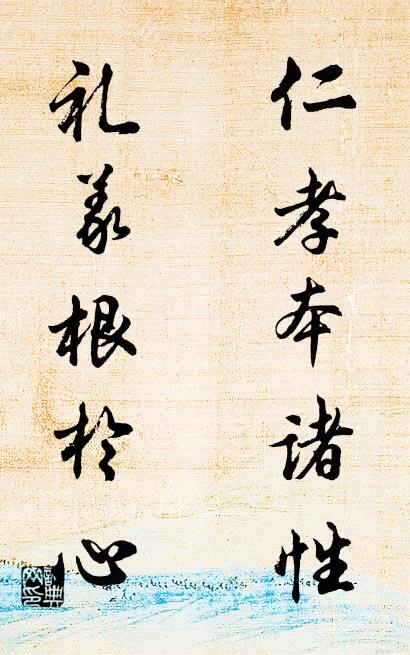 仁孝本诸性
礼义根於心